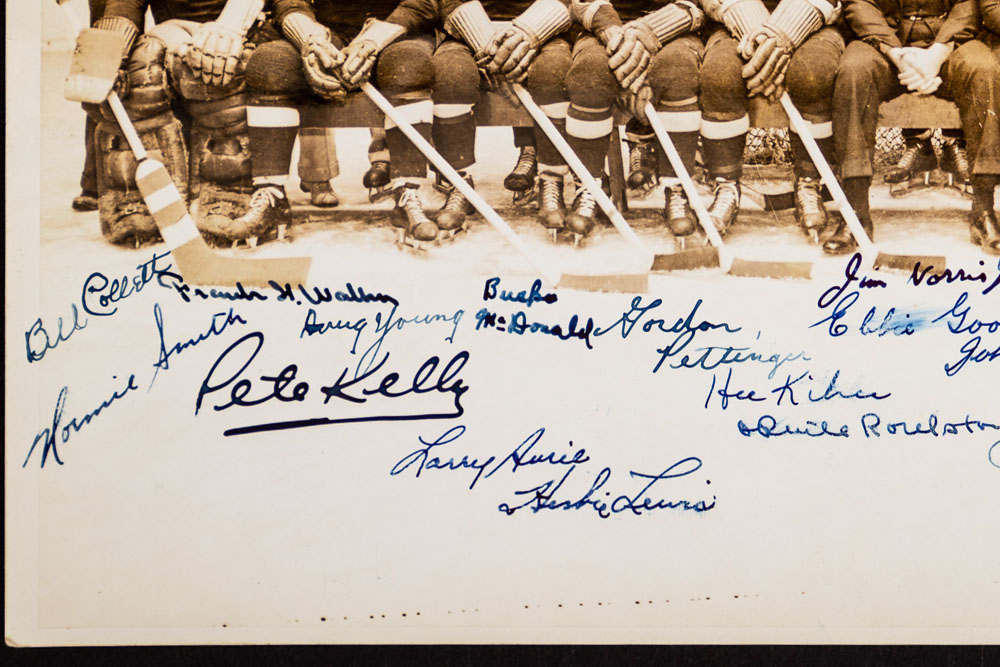 Bill Collett
Normie Smith
Doug Young
Bucko
McDonald
Gordon
Pettinger
Jim Norris
Ebbie Goo
Pete Kelly
Hec Kilrea
Larry Aurie
Herbie Lewis